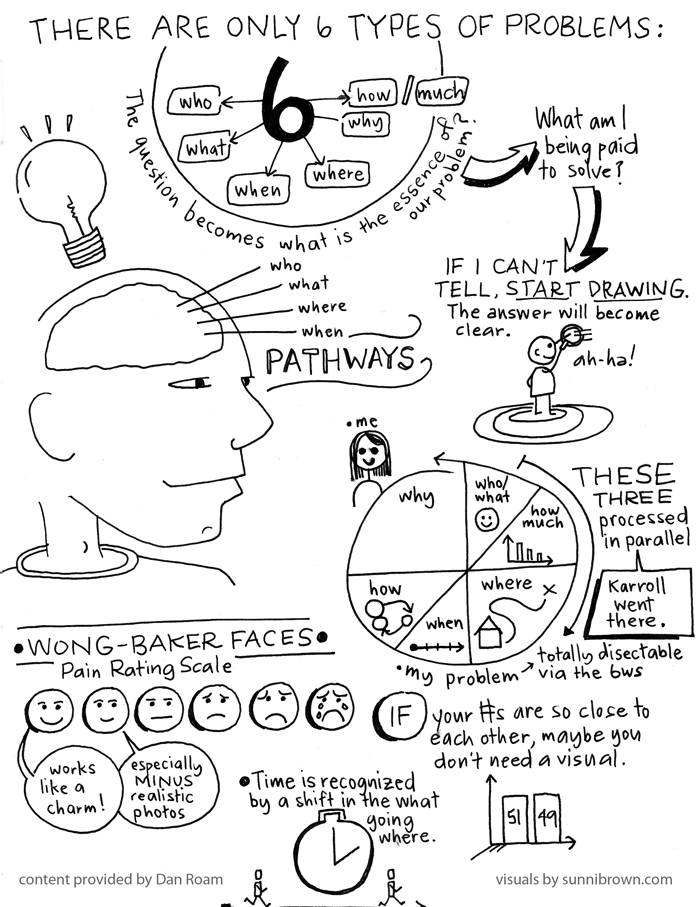 THERE ARE ONLY 6 TYPES OF PROBLEMS:
6
who
how / much
why
what
when
where
The question becomes what is the essence of
our problem?
What am I
being paid
to solve?
IF I CAN'T
TELL, START DRAWING.
The answer will become
clear.
ah-ha!
who
what
where
when
PATHWAYS
• me
why
who/
what
how
much
where
when
how
• my problem
THESE
THREE
processed
in parallel
Karroll
went
there.
totally disectable
via the 6ws
• WONG-BAKER FACES •
Pain Rating Scale
works
like a
charm!
especially
MINUS
realistic
photos
IF your #s are so close to
each other, maybe you
don't need a visual.
51 49
• Time is recognized
by a shift in the what
going
where.
content provided by Dan Roam
visuals by sunnibrown.com